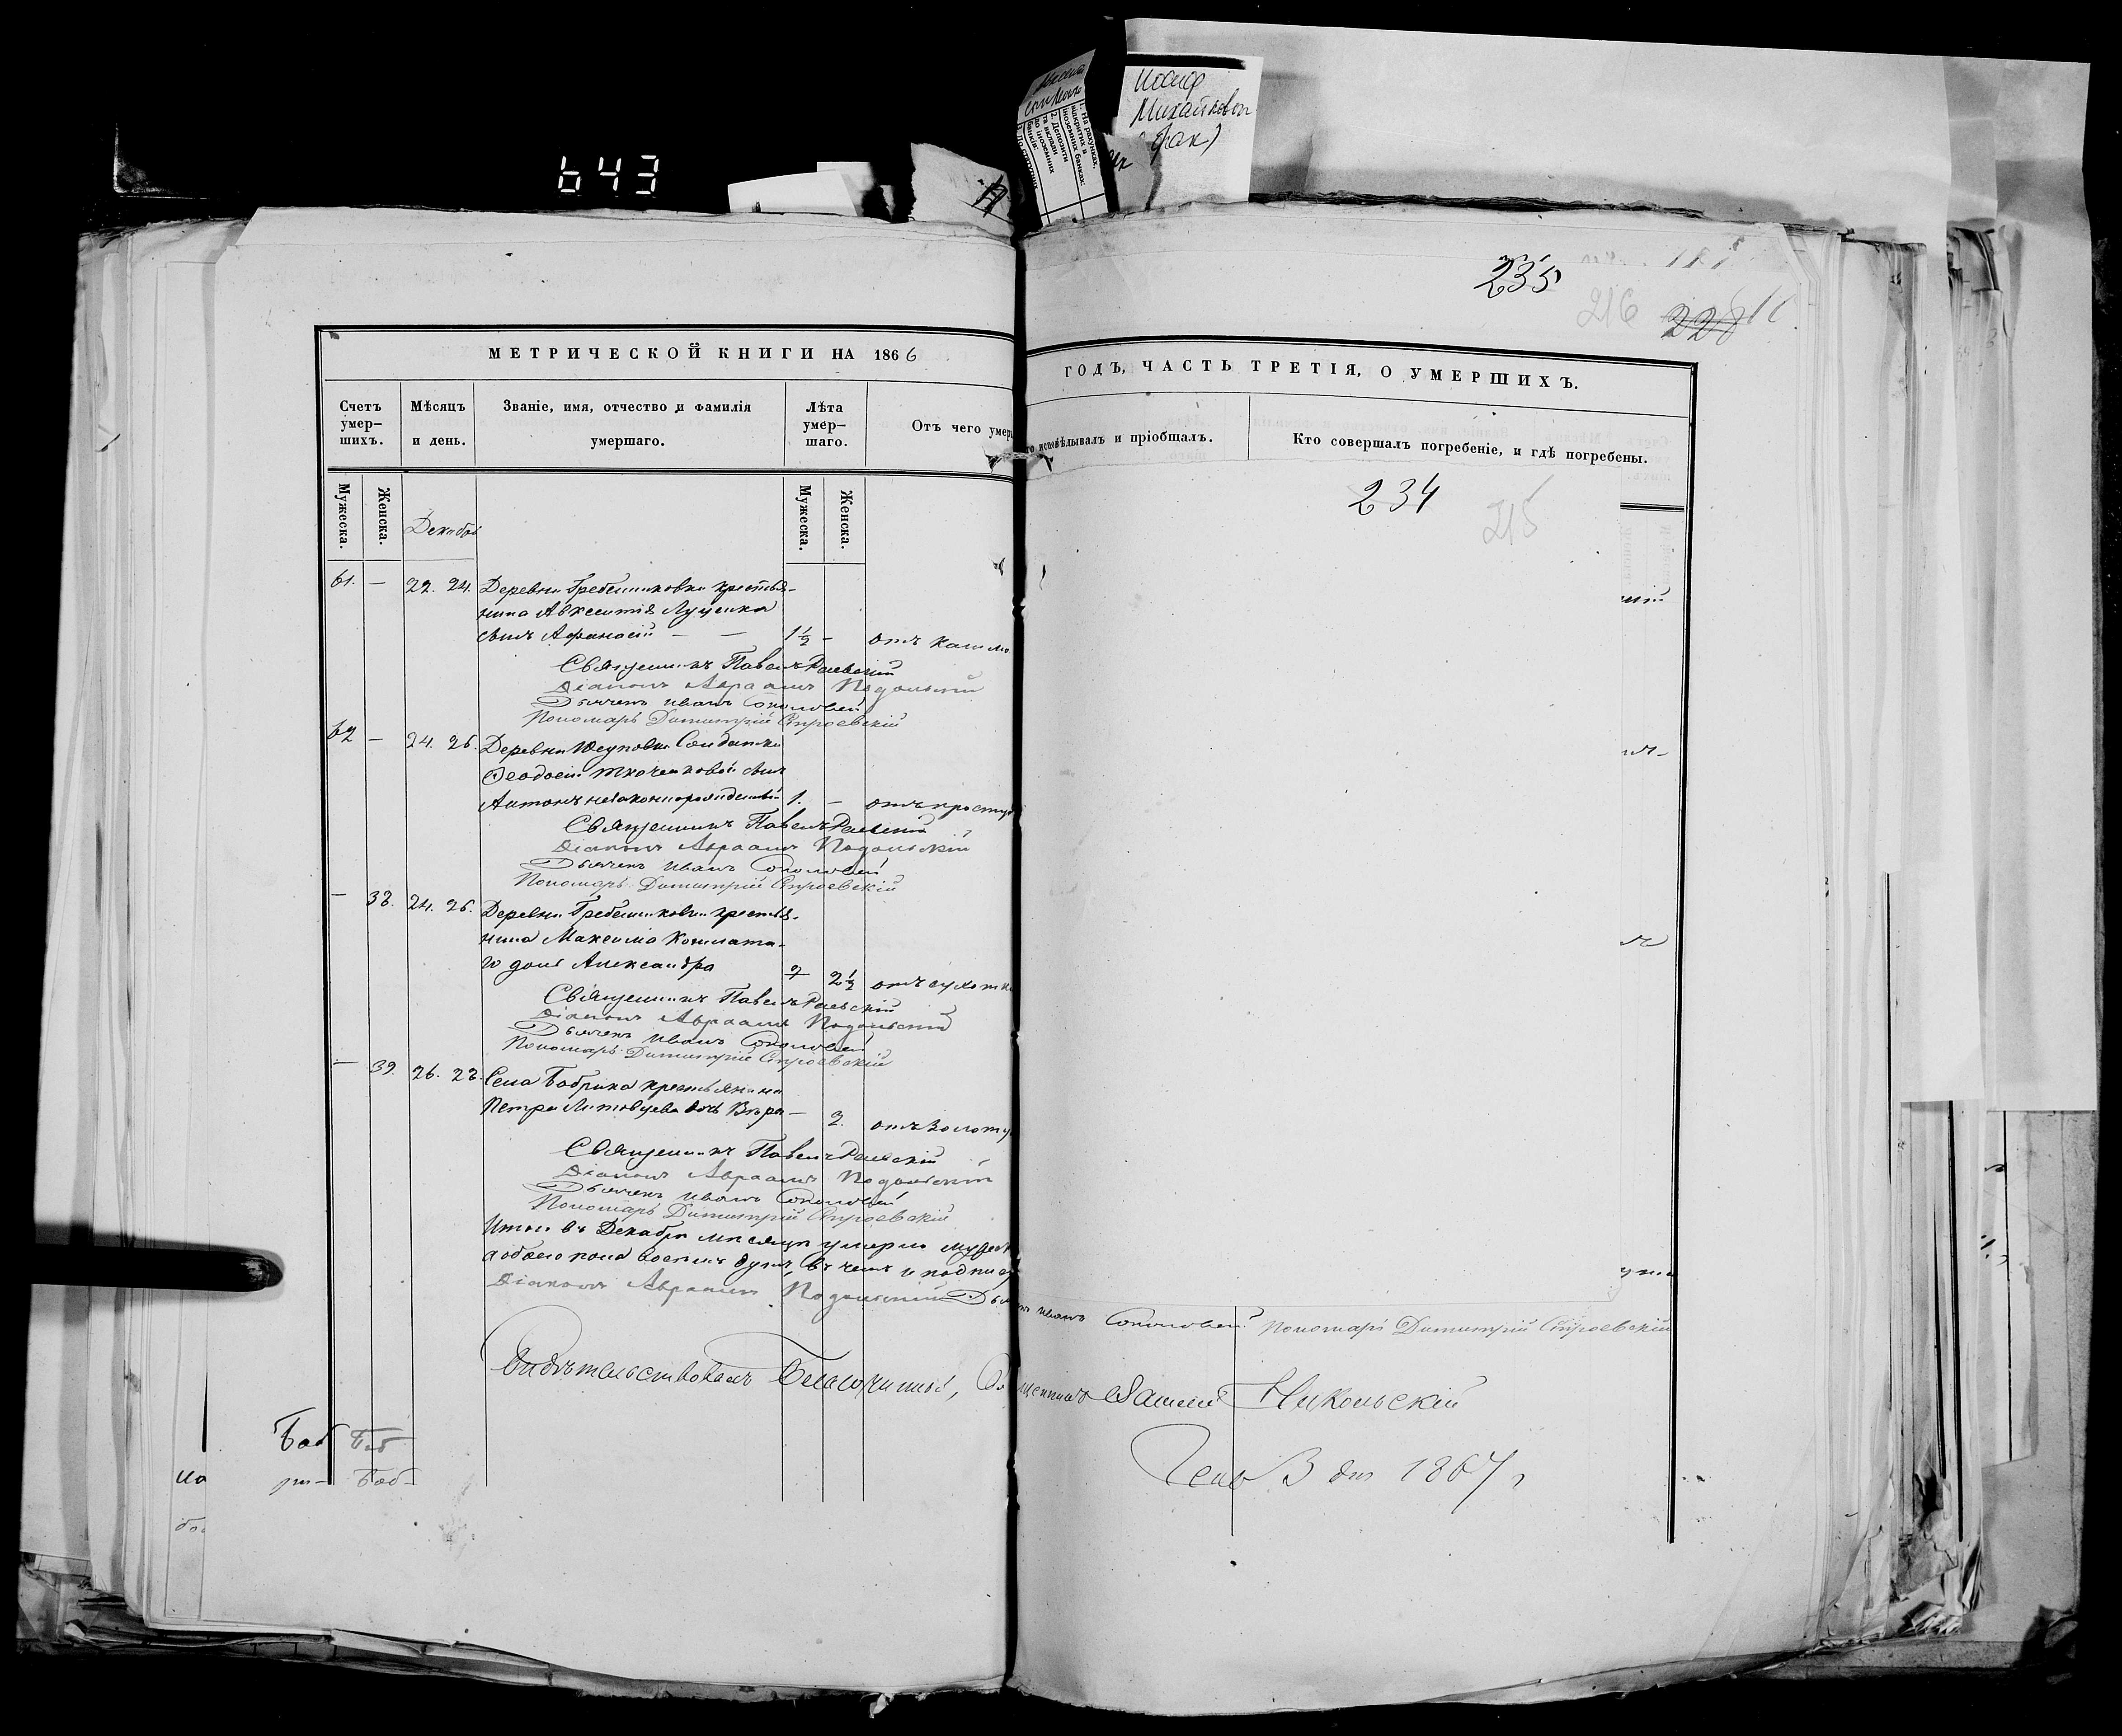 643
Иосиф
Михайлович
235
216
228
МЕТРИЧЕСКОЙ КНИГИ НА 1866
ГОДЪ, ЧАСТЬ ТРЕТІЯ, О УМЕРШИХЪ.
Счетъ умер-шихъ.
Мѣсяцъ и день.
Званіе, имя, отчество и фамилія умершаго.
Лѣта умер-шаго.
Отъ чего умер
исповѣдывалъ и пріобщалъ.
Кто совершалъ погребеніе, и гдѣ погребены.
Мужеска.
Женска.
Мужеска.
Женска.
234
215
61. — 22. 24. Деревни Гребенниковки крестья-
нина Авксентія Луценка
сынъ Афанасій — — 1½ — отъ кашля
Священникъ Павелъ Раевскій
Діаконъ Авраамъ Подольскій
Дьячекъ Иванъ Соколовскій
Пономарь Димитрій Строевскій
62 — 24. 26. Деревни Юсуповки Солдатки
Феодосіи Ткаченковой сынъ
Антонъ незаконнорожденный 1. — отъ простуд
Священникъ Павелъ Раевскій
Діаконъ Авраамъ Подольскій
Дьячекъ Иванъ
Пономарь Димитрій Строевскій
— 38. 24. 26. Деревни Гребенниковки крестья-
нина Максима
дочь Александра 2½ отъ сухотки
Священникъ Павелъ Раевскій
Діаконъ Авраамъ Подольскій
Дьячекъ Иванъ
Пономарь Димитрій Строевскій
— 39. 26. 28. Села Бобрика крестьянина
Петра Литовцева дочь Вѣра — 2. отъ золоту
Священникъ Павелъ Раевскій
Діаконъ Авраамъ Подольскій
Дьячекъ Иванъ
Пономарь Димитрій Строевскій
Итого въ Декабрѣ мѣсяцѣ умерло мужеск
а обоего пола восемь душъ, въ чемъ и подпису
Діаконъ Авраамъ Подольскій Дьячекъ Иванъ Пономарь Димитрій Строевскій
Свидѣтельствовалъ Благочинный, Священникъ Никольскій
Генв 3 дня 1867
Боб Боб
ри- Боб-